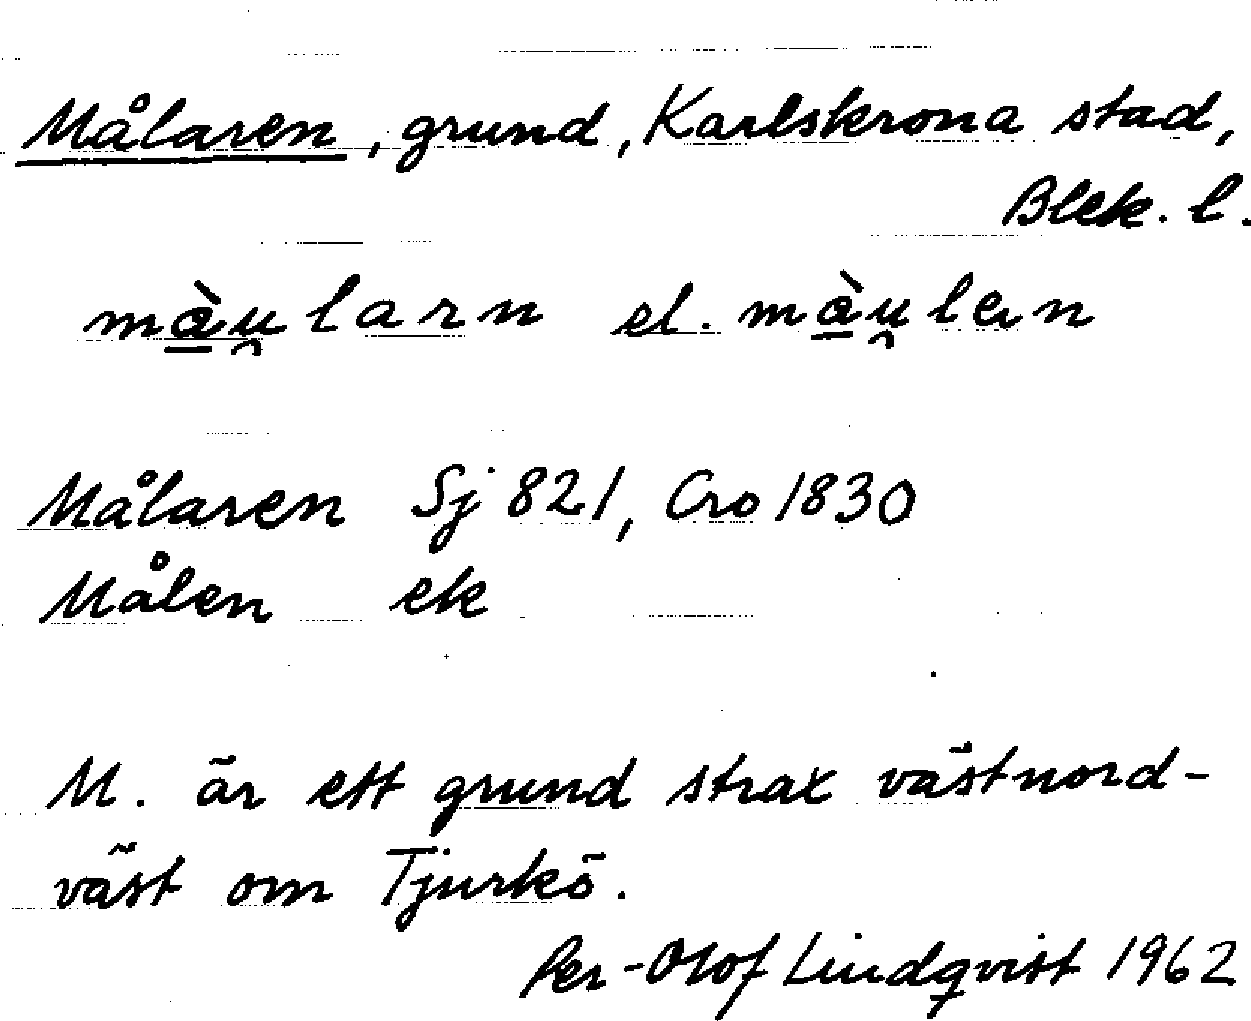 Målaren, grund, Karlskrona stad,
Blek. l.
màu̯larn el. màu̯len
Målaren Sj 821, Cro 1830
Målen ek
M. är ett grund strax västnord-
väst om Tjurkö.
Per-Olof Lindqvist 1962